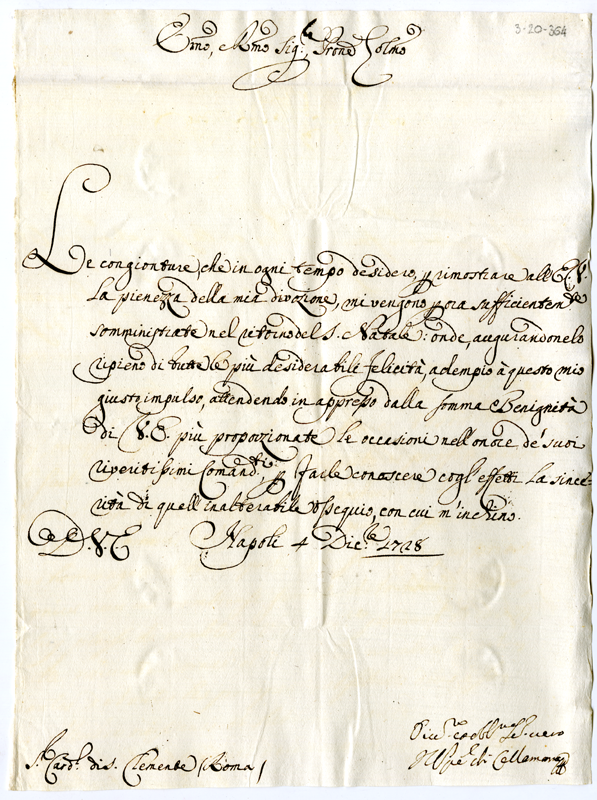 3-20-364
Emo, e Rmo Sig.re Prone Colmo
Le congionture, che in ogni tempo desidero, p rimostrare all'E.V.
la pienezza della mia divozione, mi vengono p ora sufficientem.te
somministrate nel ritorno del S. Natale: onde, augurandonelo
ripieno di tutte le più desiderabili felicità, adempio à questo mio
giusto impulso, attendendo in appresso dalla somma Benignità
di V.E. più proporzionate le occasioni nell'onore de' suoi
riveritissimi Comand.ti, p farle conoscere cogl'effetti la since-
rità di quell'inalterabile ossequio, con cui m'inchino.
D.V.E. Napoli 4 Dic.re 1728
S.r Card.l di S. Clemente (Roma)
Div.mo ed obbl.mo